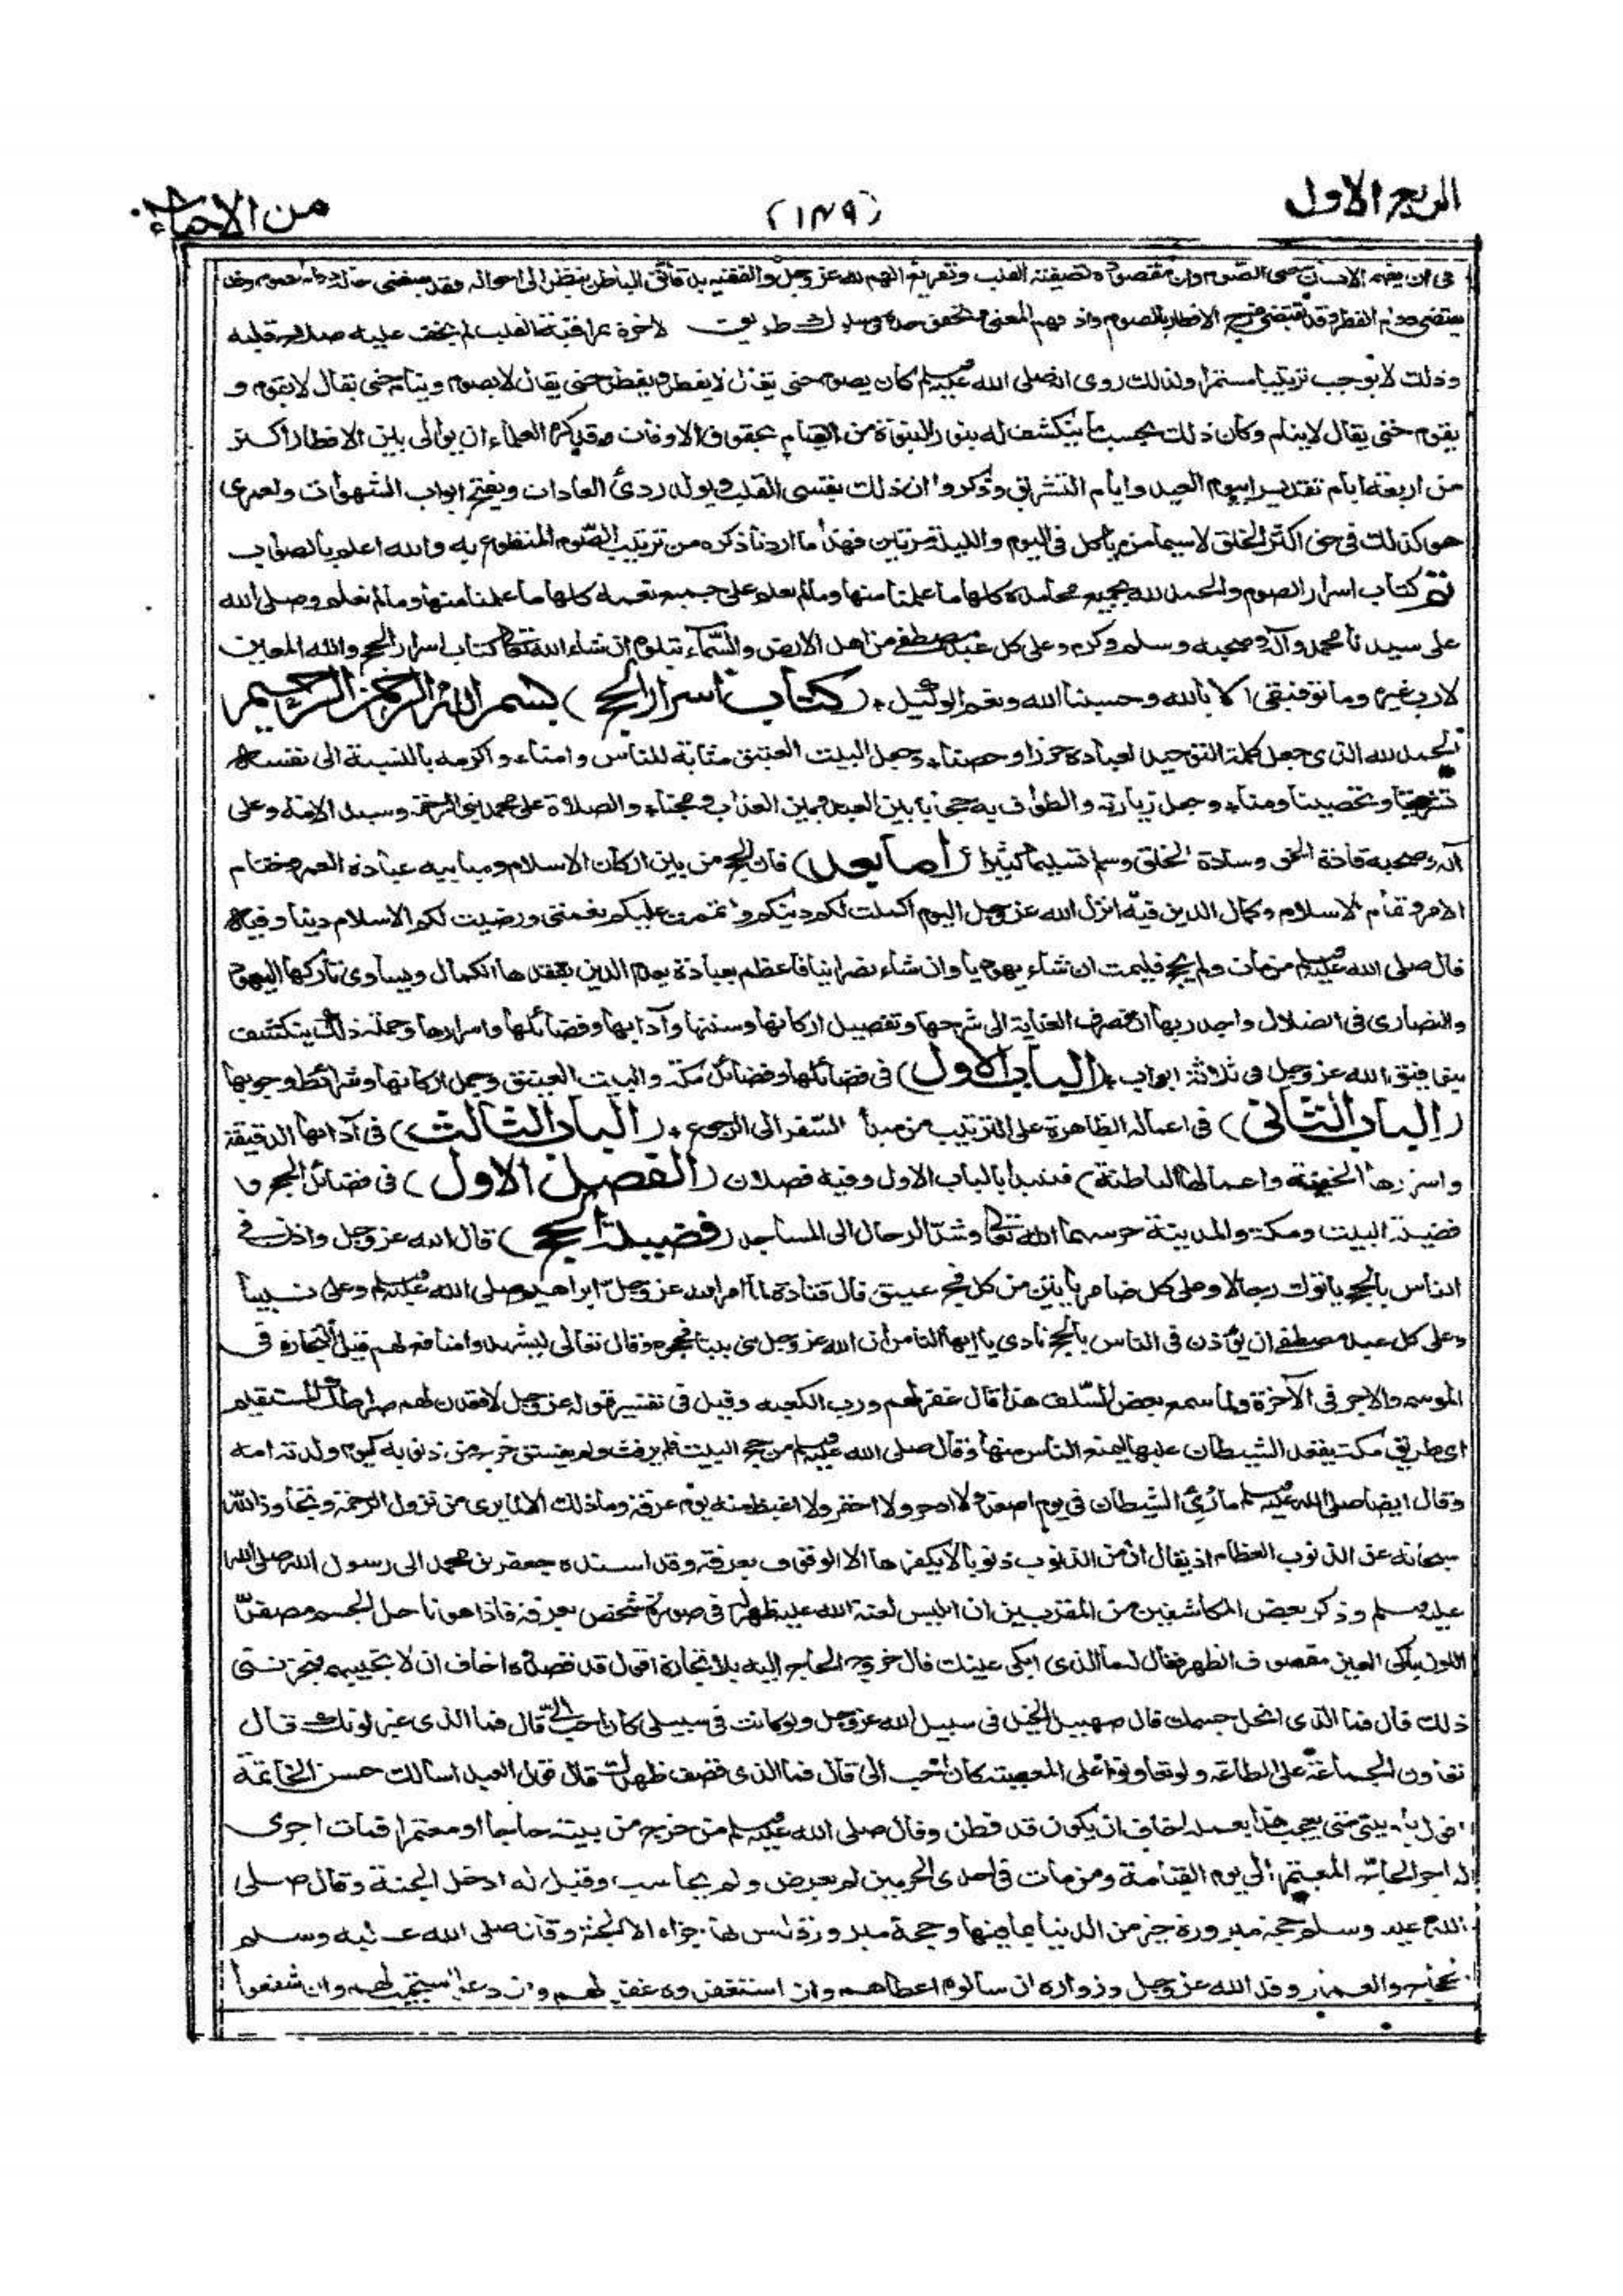 الربع الاول
(١٤٩)
من الاحياء
في ان يفهم الانسان معنى الصوم وان مقصوده تصفية القلب وتفريغ الهم لله عز وجل والفقيه بدقائق الباطن ينظر الى احواله فقد يقتضى حاله دوام الصوم وقد
يقتضى دوام الفطر وقد يقتضى مزج الافطار بالصوم واذا فهم المعنى وتحقق حده في سلوك طريق الاخرة بمراقبة القلب لم يخف عليه صلاح قلبه
وذلك لا يوجب ترتيبا مستمرا ولذلك روى انه صلى الله عليه وسلم كان يصوم حتى يقال لا يفطر ويفطر حتى يقال لا يصوم وينام حتى يقال لا يقوم و
يقوم حتى يقال لا ينام وكان ذلك بحسب ما ينكشف له بنور النبوة من القيام بحقوق الاوقات وقد كره العلماء ان يوالى بين الافطار اكثر
من اربعة ايام تقديرا بيوم العيد وايام التشريق وذكروا ان ذلك يقسى القلب ويولد ردئ العادات ويفتح ابواب الشهوات ولعمرى
هو كذلك في حق اكثر الخلق لاسيما من يأكل في اليوم والليلة مرتين فهذا ما اردنا ذكره من ترتيب الصوم المتطوع به والله اعلم بالصواب
تم كتاب اسرار الصوم والحمد لله بجميع محامده كلها ما علمنا منها وما لم نعلم على جميع نعمه كلها ما علمنا منها وما لم نعلم وصلى الله
على سيدنا محمد وآله وصحبه وسلم وكرم وعلى كل عبد مصطفى من اهل الارض والسماء يتلوه ان شاء الله تعالى كتاب اسرار الحج والله المعين
لا رب غيره وما توفيقى الا بالله وحسبنا الله ونعم الوكيل ٭ (كتاب اسرار الحج) بسم الله الرحمن الرحيم
الحمد لله الذى جعل كلمة التوحيد لعباده حرزا وحصنا ٭ وجعل البيت العتيق مثابة للناس وامنا ٭ واكرمه بالنسبة الى نفسه
تشريفا وتحصينا ومنا ٭ وجعل زيارته والطواف به حجابا بين العبد وبين العذاب ومجنا ٭ والصلاة على محمد نبى الرحمة وسيد الامة وعلى
آله وصحبه قادة الحق وسادة الخلق وسلم تسليما كثيرا (اما بعد) فان الحج من بين اركان الاسلام ومبانيه عبادة العمر وختام
الامر وتمام الاسلام وكمال الدين فيه انزل الله عز وجل اليوم اكملت لكم دينكم واتممت عليكم نعمتى ورضيت لكم الاسلام دينا وفيه
قال صلى الله عليه وسلم من مات ولم يحج فليمت ان شاء يهوديا وان شاء نصرانيا فاعظم بعبادة يعدم الدين بفقدها الكمال ويساوى تاركها اليهود
والنصارى في الضلال واجدر بها ان تصرف العناية الى شرحها وتفصيل اركانها وسننها وآدابها وفضائلها واسرارها وجملة ذلك ينكشف
بتوفيق الله عز وجل في ثلاثة ابواب ٭ (الباب الاول) في فضائلها وفضائل مكة والبيت العتيق وجمل اركانها وشرائط وجوبها
(الباب الثانى) في اعماله الظاهرة على الترتيب من مبدأ السفر الى الرجوع ٭ (الباب الثالث) في آدابها الدقيقة
واسرارها الخفية واعمالها الباطنة) فنبدأ بالباب الاول وفيه فصلان (الفصل الاول) في فضائل الحج و
فضيلة البيت ومكة والمدينة حرسهما الله تعالى وشد الرحال الى المساجد (فضيلة الحج) قال الله عز وجل واذن في
الناس بالحج يأتوك رجالا وعلى كل ضامر يأتين من كل فج عميق قال قتادة لما امر الله عز وجل ابراهيم صلى الله عليه وسلم وعلى نبينا
وعلى كل عبد مصطفى ان يؤذن في الناس بالحج نادى يا ايها الناس ان الله عز وجل بنى بيتا فحجوه وقال تعالى ليشهدوا منافع لهم قيل التجارة في
الموسم والاجر في الآخرة ولما سمع بعض السلف هذا قال غفر لهم ورب الكعبه وقيل في تفسير قوله عز وجل لاقعدن لهم صراطك المستقيم
اى طريق مكة يقعد الشيطان عليها ليمنع الناس منها وقال صلى الله عليه وسلم من حج البيت فلم يرفث ولم يفسق خرج من ذنوبه كيوم ولدته امه
وقال ايضا صلى الله عليه وسلم ما رئى الشيطان في يوم اصغر ولا ادحر ولا احقر ولا اغيظ منه يوم عرفة وما ذلك الا لما يرى من نزول الرحمة وتجاوز الله
سبحانه عن الذنوب العظام اذ يقال ان من الذنوب ذنوبا لا يكفرها الا الوقوف بعرفة وقد اسنده جعفر بن محمد الى رسول الله صلى الله
عليه وسلم وذكر بعض المكاشفين من المقربين ان ابليس لعنة الله عليه ظهر له في صورة شخص بعرفة فاذا هو ناحل الجسم مصفر
اللون باكى العين مقصوف الظهر فقال له ما الذى ابكى عينك قال خروج الحاج اليه بلا تجارة اقول قد قصدوه اخاف ان لا يخيبهم فيحزننى
ذلك قال فما الذى انحل جسمك قال صهيل الخيل في سبيل الله عز وجل ولو كانت في سبيلى كان احب الى قال فما الذى غير لونك قال
تعاون الجماعة على الطاعة ولو تعاونوا على المعصية كان احب الى قال فما الذى قصف ظهرك قال قول العبد اسالك حسن الخاتمة
اقول يا ويلتى متى يعجب هذا بعمله اخاف ان يكون قد فطن وقال صلى الله عليه وسلم من خرج من بيته حاجا او معتمرا فمات اجرى
له اجر الحاج المعتمر الى يوم القيامة ومن مات في احدى الحرمين لم يعرض ولم يحاسب وقيل له ادخل الجنة وقال صلى
الله عليه وسلم حجة مبرورة خير من الدنيا وما فيها وحجة مبرورة ليس لها جزاء الا الجنة وقال صلى الله عليه وسلم
الحجاج والعمار وفد الله عز وجل وزواره ان سالوه اعطاهم وان استغفروه غفر لهم وان دعوا استجيب لهم وان شفعوا